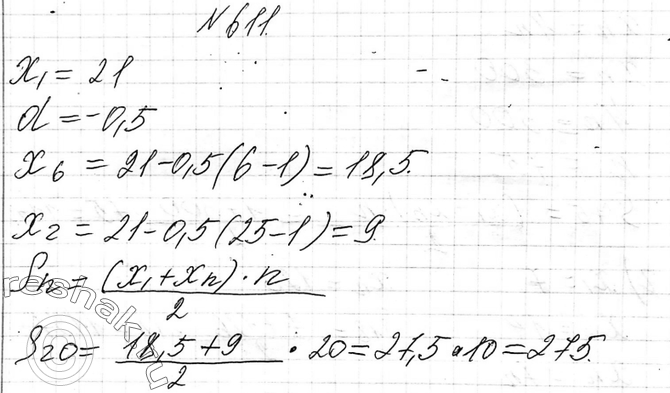 №611.
x₁ = 21
d = -0,5
x₆ = 21-0,5(6-1) = 18,5.
x₂ = 21-0,5(25-1) = 9.
Sn = (x₁+xn)·n / 2
S₂₀ = 18,5+9 / 2 · 20 = 27,5·10 = 275.
reshak.ru